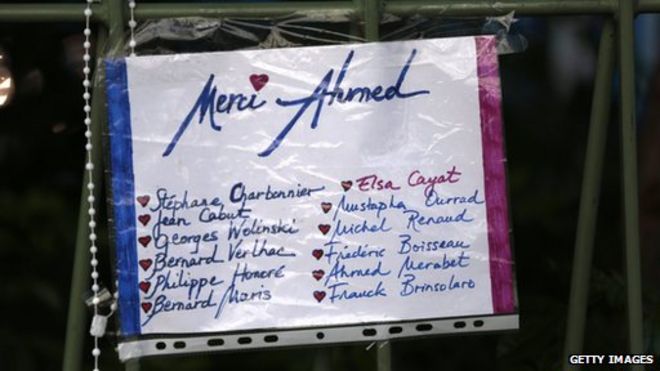 Merci Ahmed
Stéphane Charbonnier
Jean Cabut
Georges Wolinski
Bernard Verlhac
Philippe Honoré
Bernard Maris
Elsa Cayat
Mustapha Ourrad
Michel Renaud
Frédéric Boisseau
Ahmed Merabet
Franck Brinsolaro
GETTY IMAGES